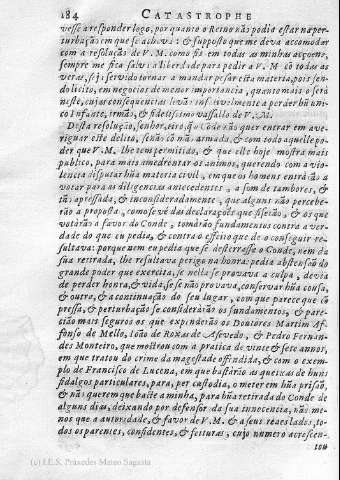 184 CATASTROPHE
vesse a responder logo, por quanto o Reino não podia estar na per-
turbação em que se achava: & supposto que me deva accomodar
com a resolução de V.M. como fis em todas as minhas acçoens,
sempre me fica salva a liberdade para pedir a V. M. cõ todas as
veras, seja servido tornar a mandar pesar esta materia, pois sen-
do licito, em negocios de menor importancia, quanto mais o será
neste, cujas consequencias a perder hũ uni-
co Infante, irmão, & fidelissimo vassallo de V.M.
Desta resolução, senhor, que não quer entrar em ave-
riguar este delito, senão cõ mão armada, & com todo aquelle po-
der que V.M. lhe tem permitido, & que elle hoje mostra mais
publico, para mais amedrentar os animos, querendo com a vio-
lencia disputar hũa materia civil, em que os homens entrarão a
votar para as diligencias antecedentes, a som de tambores, &
tão apressada, & inconsideradamente, que alguns não percebe-
rão a proposta, como se vè das declarações que fiserão, & os que
votarão a favor do Conde, tomarão fundamentos contra a ver-
dade do que eu pedia, & contra o effeito que de o conseguir re-
sultava: porque nem eu pedia que se desterrasse o Conde, nem da
sua retirada, lhe resultava perigo na honra: pedia abstensão do
grande poder que exercita, se nella se provava a culpa, devia
de perder honra, & vida, se se não provava, conservar hũa cousa,
& outra, & a continuação do seu lugar, com que parece que cõ
pressa, & perturbação se considerarão os fundamentos, & pare-
cião mais seguros os que expenderão os Doutores Martim Af-
fonso de Mello, Ioão de Roxas de Asevedo, & Pedro Fernan-
des Monteiro, que mostron com a pratica de vinte & sete annos,
em que tratou do crime da magestade offendida, & com o exem-
plo de Francisco de Lucena, em que bastárão as queixas de huns
fidalgos particulares, para, per custodia, o meter em hũa prisão,
& não querem que baste a minha, para hũa retirada do Conde de
alguns dias, deixando por defensor da sua innocencia, não me-
nos que a autoridade, & favor de V.M. & a seus reaes lados, to-
dos os parentes, confidentes, & feituras, cujo numero acrescen-
tou
(c) I.E.S. Práxedes Mateo Sagasta